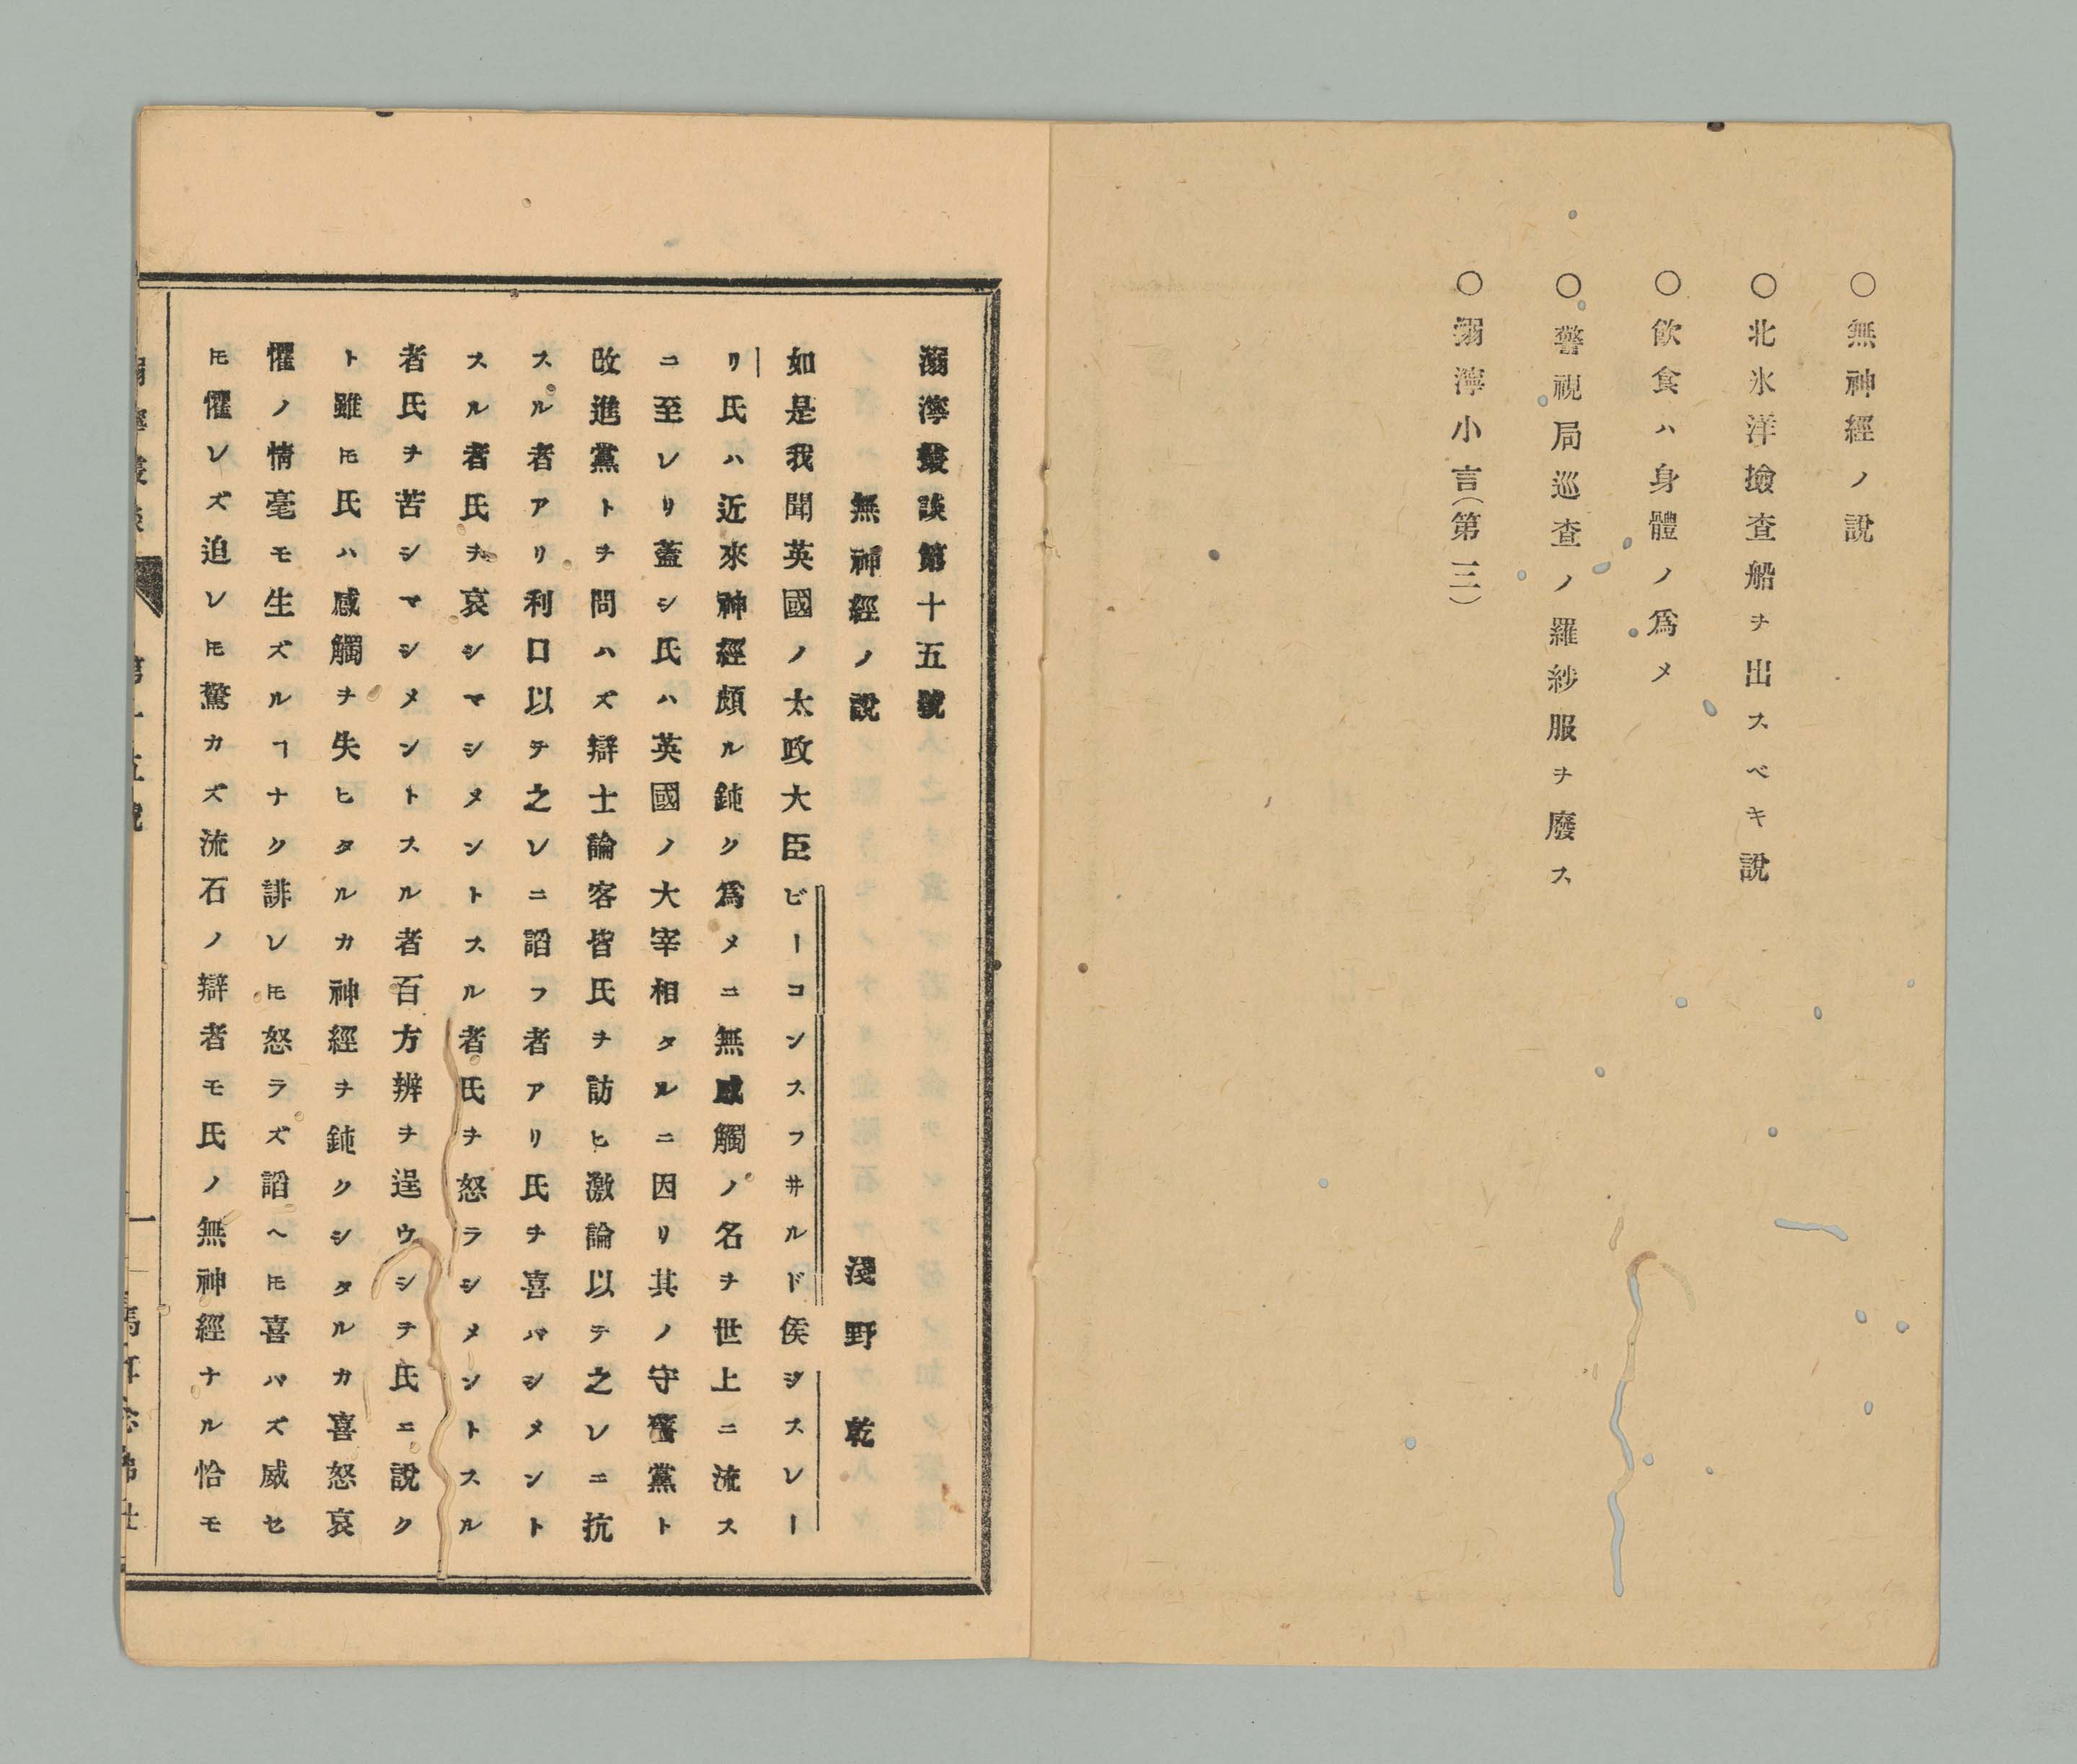 ○無神經ノ說
○北氷洋撿查船ヲ出スベキ說
○飲食ハ身體ノ爲メ
○警視局巡查ノ羅紗服ヲ廢ス
○溺濘小言(第三)
溺濘叢談第十五號
無神經ノ說　淺野　乾
如是我聞英國ノ太政大臣ビーコンスフ井ルド侯ヂスレー
リ氏ハ近來神經頗ル鈍ク爲メニ無感觸ノ名ヲ世上ニ流ス
ニ至レリ蓋シ氏ハ英國ノ大宰相タルニ因リ其ノ守舊黨ト
改進黨トヲ問ハズ辯士論客皆氏ヲ訪ヒ激論以テ之レニ抗
スル者アリ利口以テ之レニ謟フ者アリ氏ヲ喜バシメント
スル者氏ヲ哀シマシメントスル者氏ヲ怒ラシメントスル
者氏ヲ苦シマシメントスル者百方辨ヲ逞ウシテ氏ニ說ク
ト雖𪜈氏ハ感觸ヲ失ヒタルカ神經ヲ鈍クシタルカ喜怒哀
懼ノ情毫モ生ズルヿナク誹レ𪜈怒ラズ謟ヘ𪜈喜バズ威セ
𪜈懼レズ迫レ𪜈驚カズ流石ノ辯者モ氏ノ無神經ナル恰モ
第十五號
一